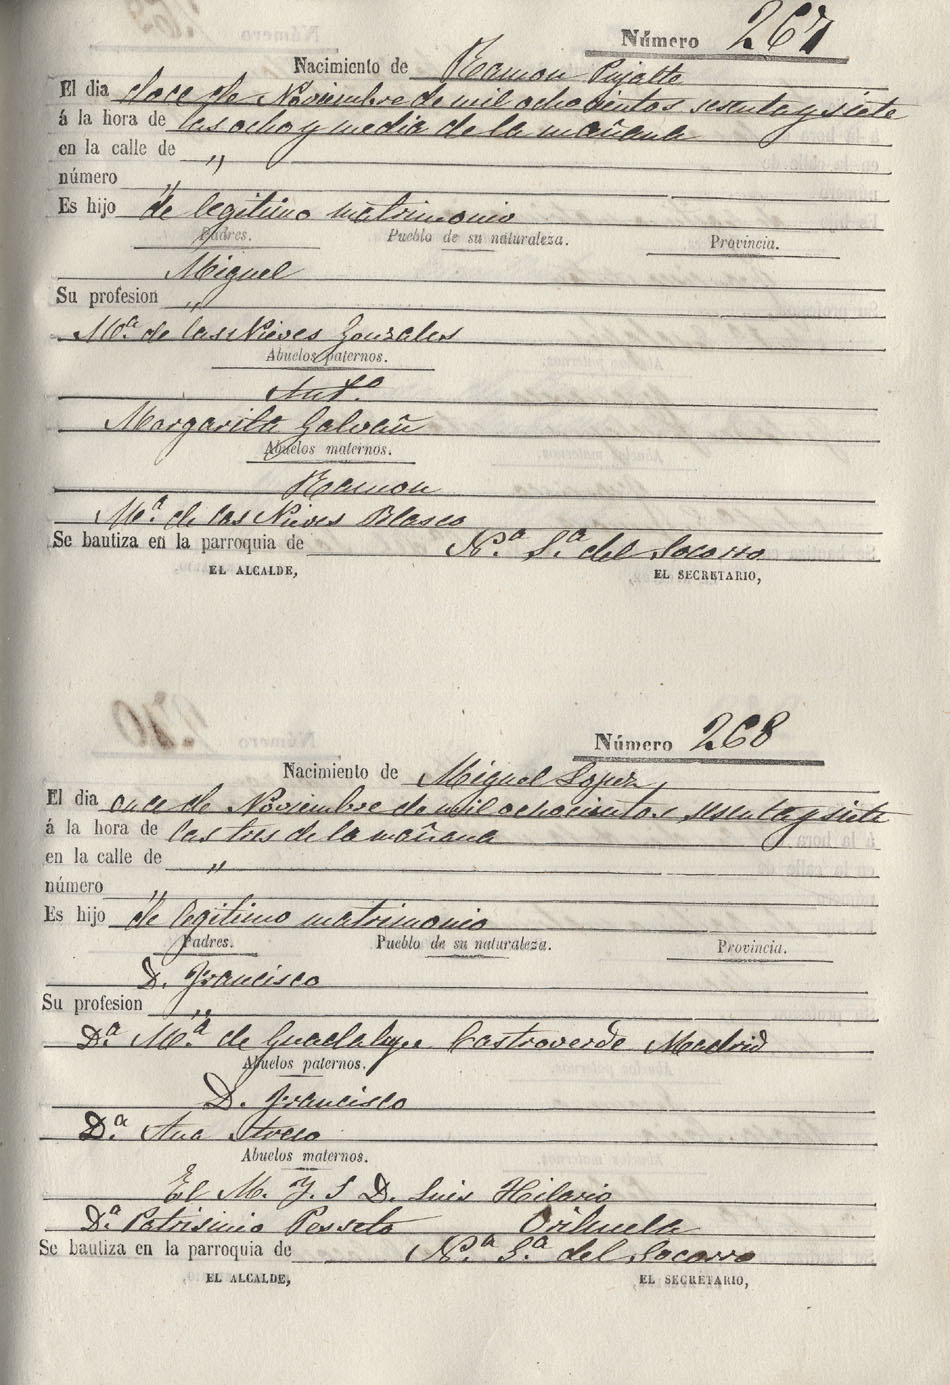 Número 267
Nacimiento de Ramon Pujalte
El dia doce de Noviembre de mil ochocientos sesenta y siete
á la hora de las ocho y media de la mañana
en la calle de "
número "
Es hijo de legitimo matrimonio
Padres. Pueblo de su naturaleza. Provincia.
Miguel
Su profesion "
Mª. de las Nieves Gonzales
Abuelos paternos.
Antº
Margarita Galvañ
Abuelos maternos.
Ramon
Mª. de las Nieves Blasco
Se bautiza en la parroquia de Nª. Sª. del Socorro
EL ALCALDE, EL SECRETARIO,
Número 268
Nacimiento de Miguel Lopez
El dia once de Noviembre de mil ochocientos sesenta y siete
á la hora de las tres de la mañana
en la calle de "
número "
Es hijo de legitimo matrimonio
Padres. Pueblo de su naturaleza. Provincia.
D. Francisco
Su profesion "
Dª. Mª. de Guadalupe Castroverde Madrid
Abuelos paternos.
D. Francisco
Dª. Ana
Abuelos maternos.
El M. Y. S D. Luis Hilario
Dª Patrisinio Orihuela
Se bautiza en la parroquia de Nª. Sª. del Socorro
EL ALCALDE, EL SECRETARIO,